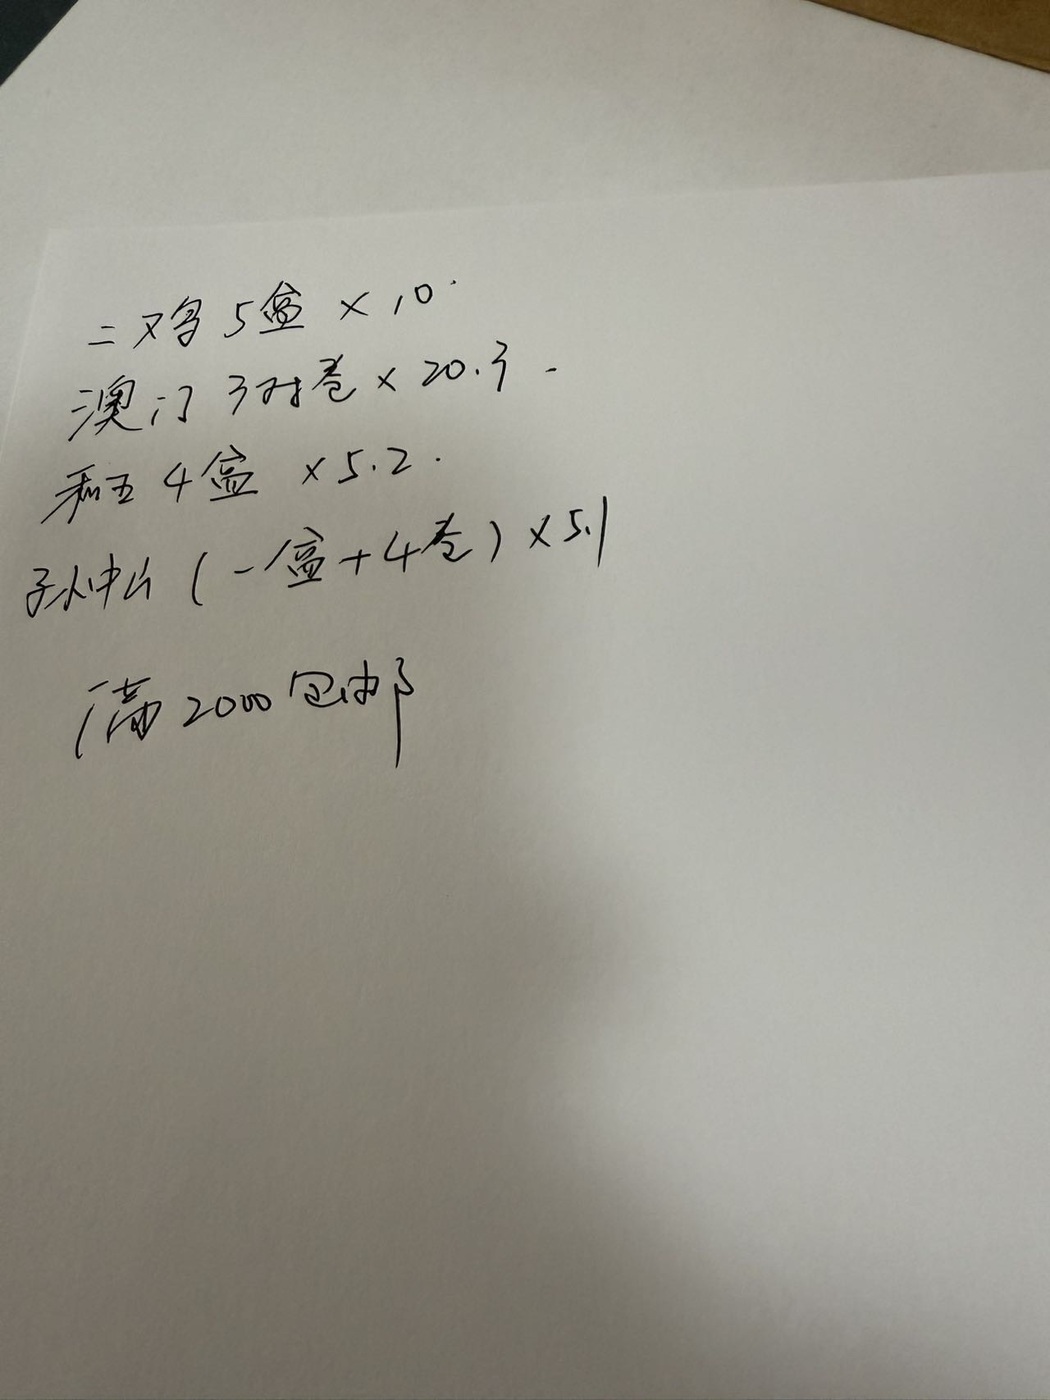 二鸡5盒×10.
澳门3对卷×20.3.
和五4盒×5.2.
孙中山(一盒+4卷)×5.1
满2000包邮